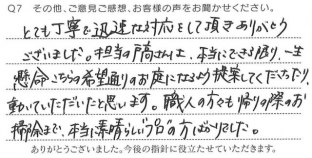 Q7 その他、ご意見ご感想、お客様の声をお聞かせください。
とても丁寧で迅速な対応をして頂きありがとう
ございました。担当の高さんは、本当にできる限り、一生
懸命こちらの希望通りのお庭になるよう提案してくださったり、
動いていただいたと思います。職人の方々も帰りの際のお
掃除まで、本当に素晴らしい"プロ"の方ばかりでした。
ありがとうございました。今後の指針に役立たせていただきます。